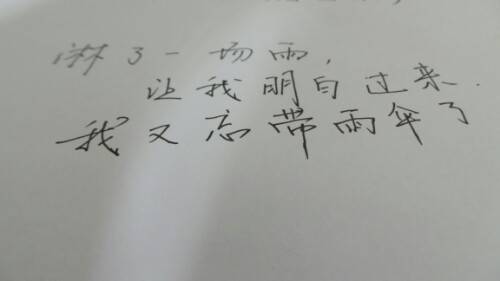 淋了一场雨,
让我明白过来.
我又忘带雨伞了